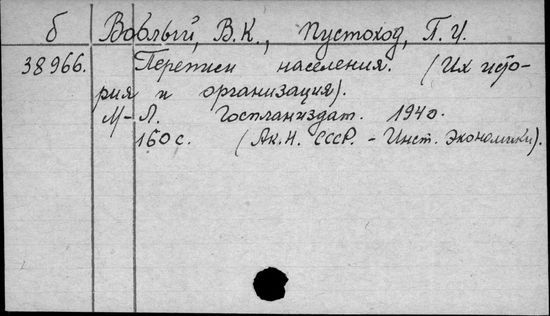 б Воблый, В.К., Пустоход, П.И.
38966. Переписи населения. (Их исто-
рия и организация).
М-Л. Госпланиздат. 1940.
160 с. (Ак.Н. СССР. - Инст. Экономики).